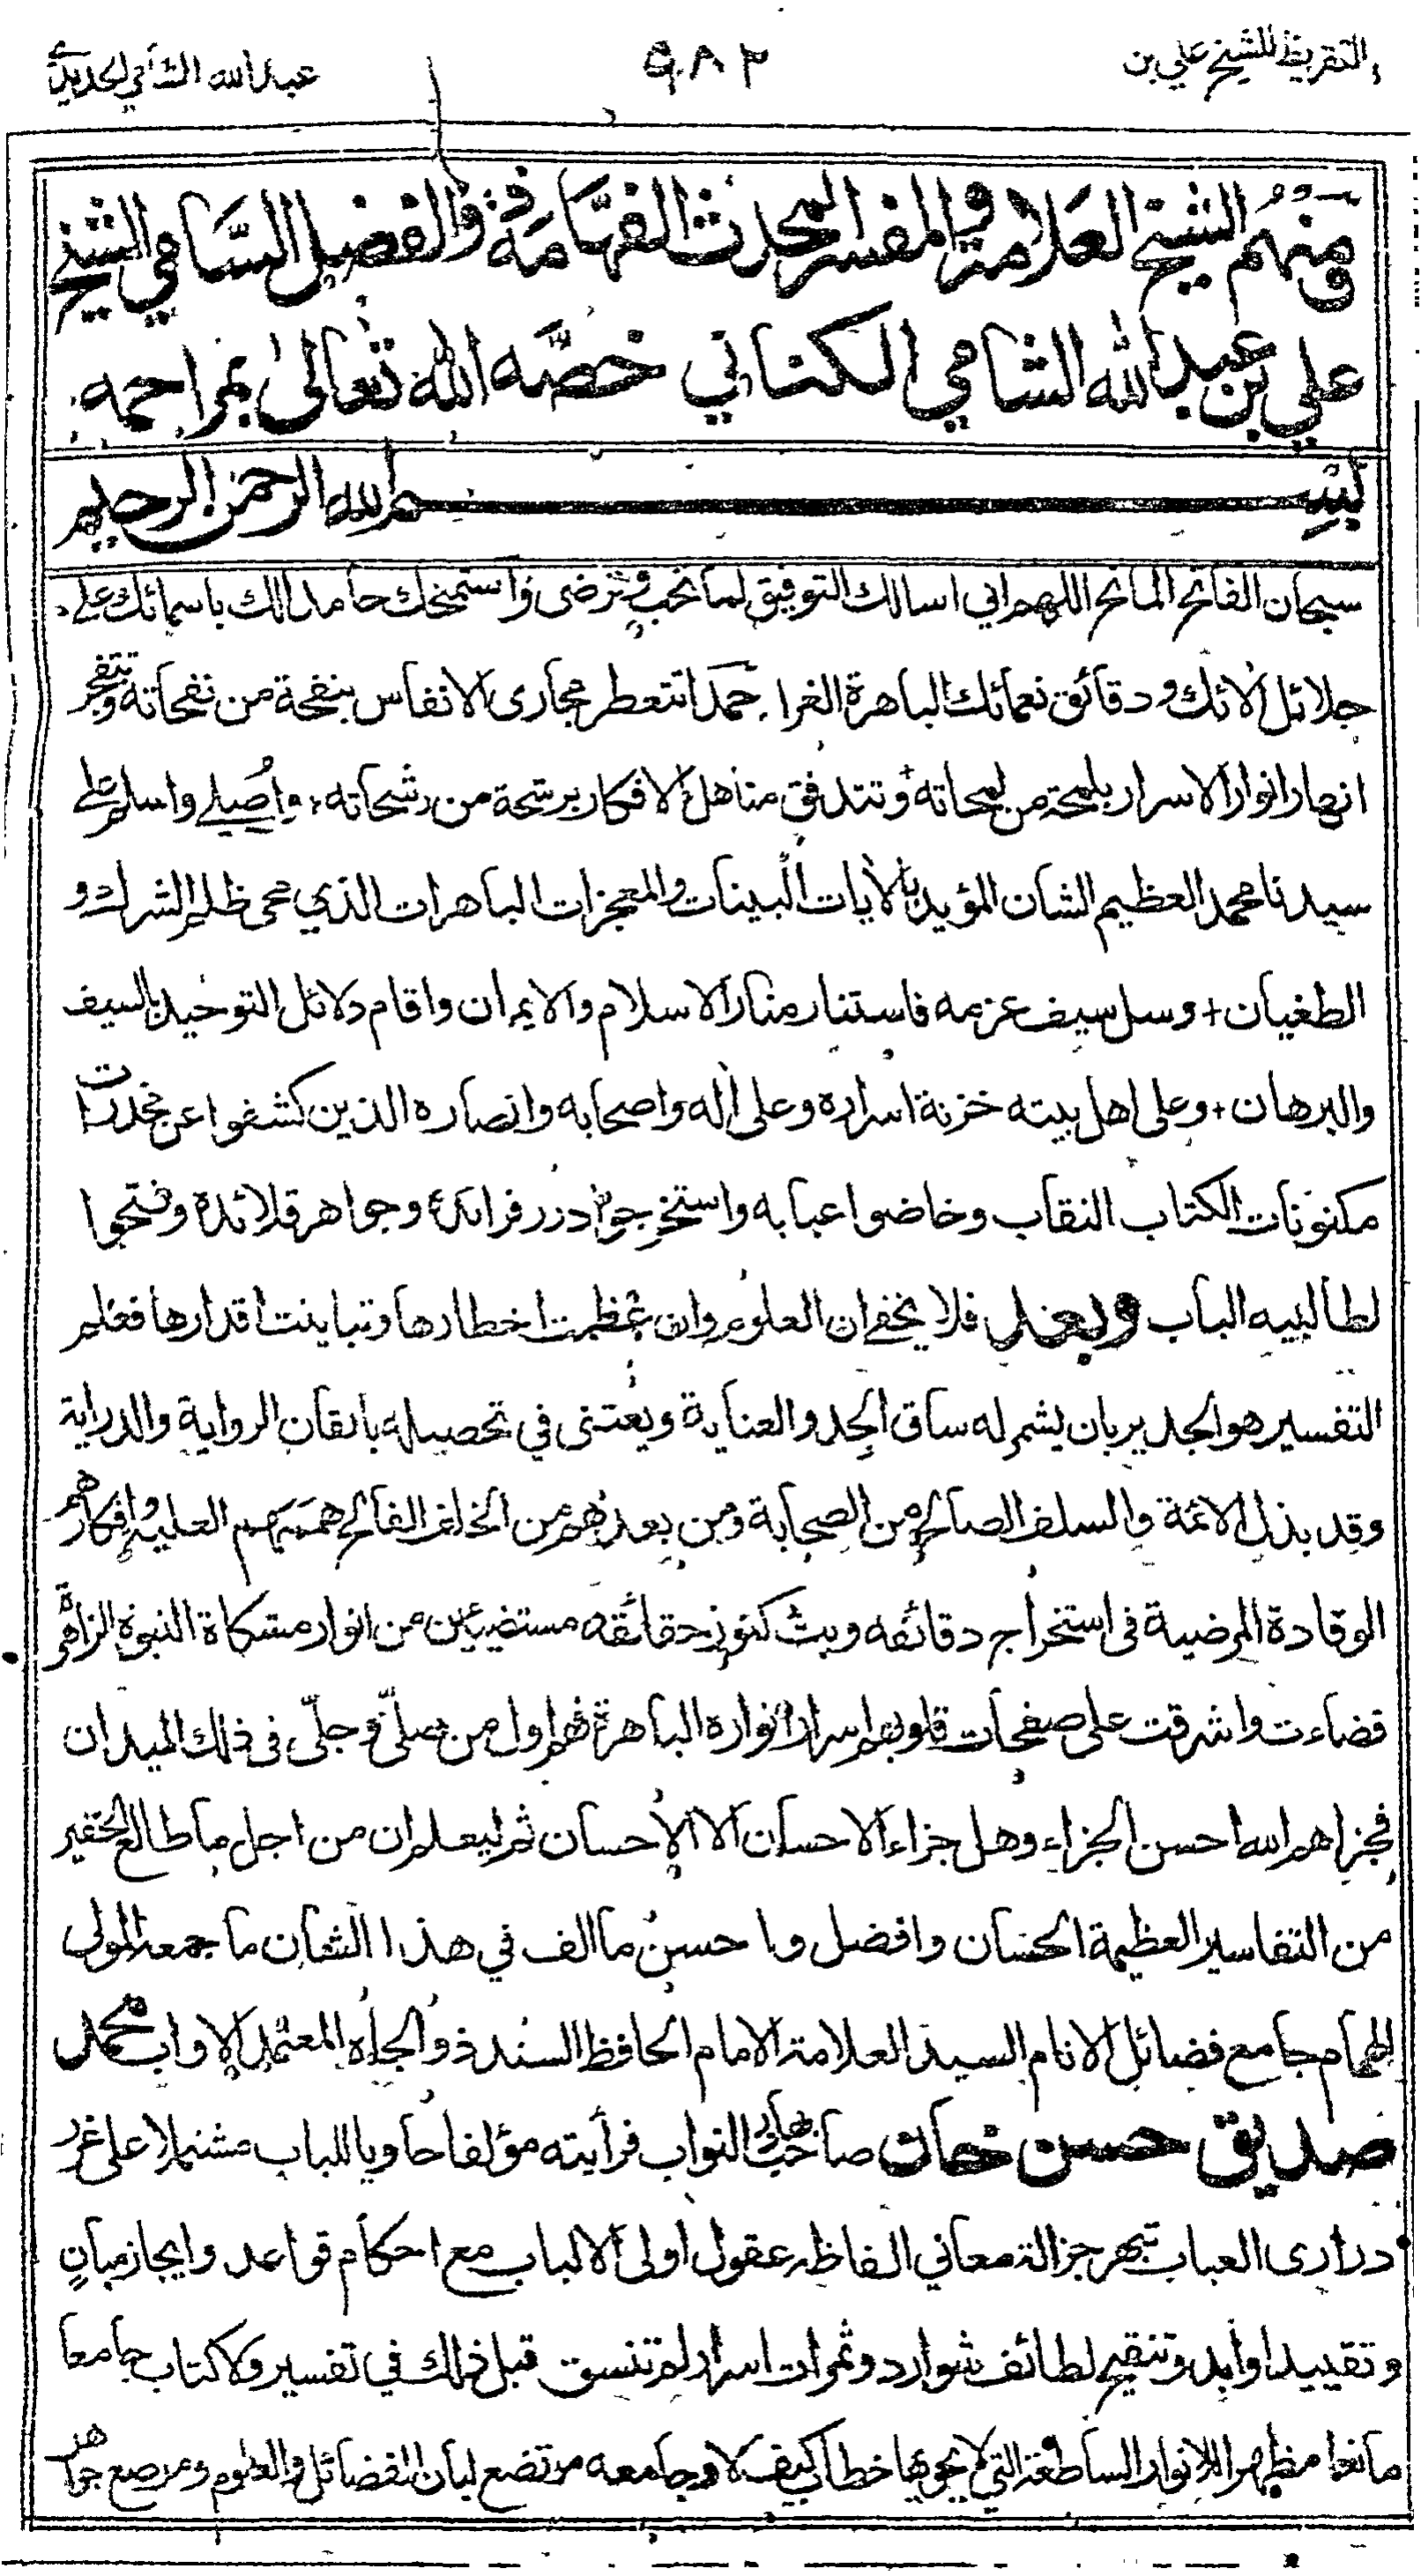 التقريظ للشيخ علي بن
٩٨٢
عبد الله الشامي الحديدي
ومنهم الشيخ العلامة والمفسر المحدث الفهامة ذو الفضل السامي الشيخ
علي بن عبد الله الشامي الكناني خصه الله تعالى بمراحمه
بسم الله الرحمن الرحيم
سبحان الفاتح المانح اللهم اني اسالك التوفيق لما تحب وترضى واستمنحك حامدا لك باسمائك على
جلائل الائك ودقائق نعمائك الباهرة الغرا، حمدا تتعطر مجارى الانفاس بنفحة من نفحاته وتتفجر
انهار انوار الاسرار بلمحة من لمحاته وتتدفق مناهل الافكار برشحة من رشحاته، واصلي واسلم على
سيدنا محمد العظيم الشان المؤيد بالايات البينات والمعجزات الباهرات الذي محى ظلم الشرك و
الطغيان + وسل سيف عزمه فاستنار منار الاسلام والايمان واقام دلائل التوحيد بالسيف
والبرهان + وعلى اهل بيته خزنة اسراره وعلى اله واصحابه وانصاره الذين كشفوا عن مخدرات
مكنونات الكتاب النقاب وخاضوا عبابه واستخرجوا درر فرائده وجواهر قلائده وفتحوا
لطالبيه الباب وبعد فلا يخفى ان العلوم وان عظمت اخطارها وتباينت اقدارها فعلم
التفسير هو الجدير بان يشمر له ساق الجد والعناية ويعتنى في تحصيله باتقان الرواية والدراية
وقد بذل الائمة والسلف الصالح من الصحابة ومن بعدهم من الخلف الفالح هممهم العلية وافكارهم
الوقادة المرضية في استخراج دقائقه وبث كنوز حقائقه مستضيئين من انوار مشكاة النبوة الزاهرة
فضاءت واشرقت على صفحات قلوبهم اسرار انواره الباهرة فهم اول من صلى وجلى في ذلك الميدان
فجزاهم الله احسن الجزاء وهل جزاء الاحسان الا الاحسان ثم ليعلم ان من اجل ما طالع الحقير
من التفاسير العظيمة الحسان وافضل واحسن ما الف في هذا الشان ما جمعه المولى
الهمام جامع فضائل الانام السيد العلامة الامام الحافظ السند ذو الجاه المعتمد الاواب محمد
صديق حسن خان صاحب بهادر النواب فرأيته مؤلفا حاويا للباب مشتملا على غرر
درارى العباب تبهر جزالة معاني الفاظه عقول اولى الالباب مع احكام قواعد وايجاز مبان
وتقييد اوابد وتنقيح لطائف شوارد وثمرات اسرار لم تنسق قبل ذلك في تفسير ولا كتاب جامعا
مانعا مظهرا للانوار الساطعة التي لا يحويها خطاب كيف لا وجامعه مرتضع لبان الفضائل والعلوم ومرصع جواهر